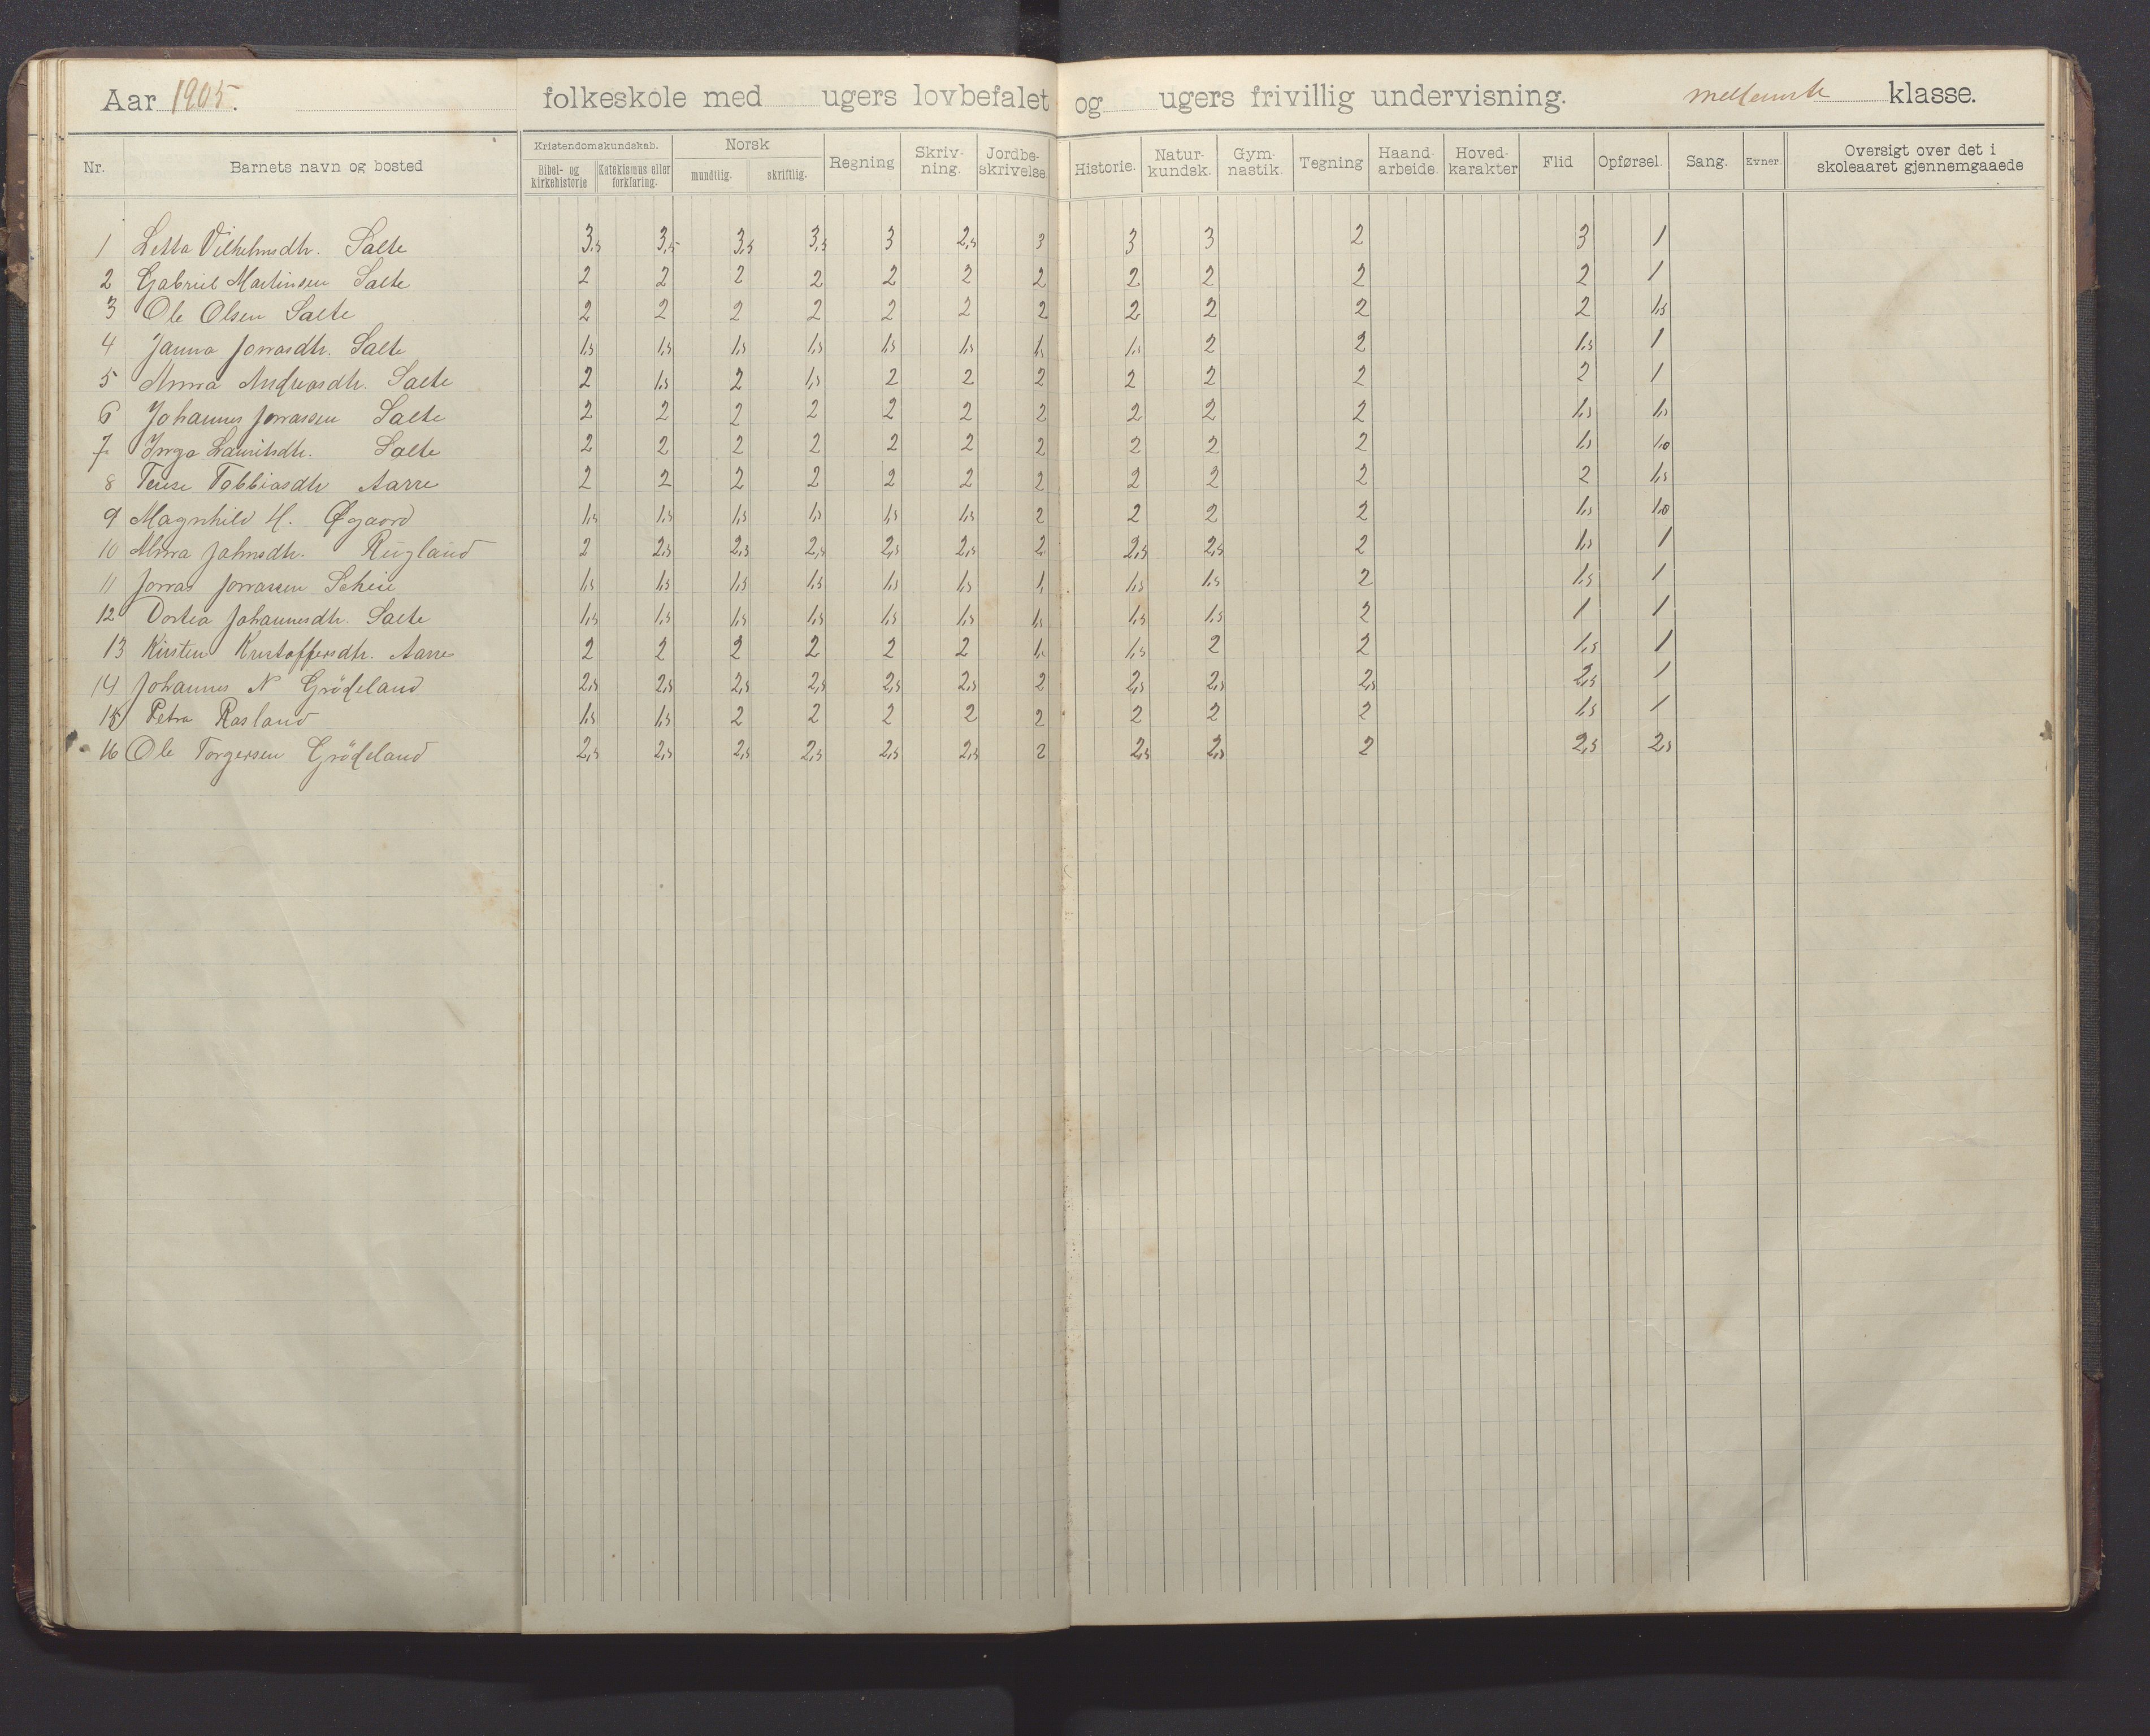 Aar 1905. folkeskole med ugers lovbefalet og ugers frivillig undervisning. mellemste klasse.
Nr. Barnets navn og bosted Kristendomskundskab. Bibel- og kirkehistorie Katekismus eller forklaring. Norsk mundtlig. skriftlig. Regning Skriv-ning. Jordbe-skrivelse. Historie. Natur-kundsk. Gym-nastik. Tegning Haand-arbeide. Hoved-karakter Flid Opførsel. Sang. Evner. Oversigt over det i skoleaaret gjennemgaaede
1 Letta Vilhelmsdtr. Salte 3,5 3,5 3,5 3,5 3 2,5 3 3 3 2 3 1
2 Gabriel Martinsen Salte 2 2 2 2 2 2 2 2 2 2 2 1
3 Ole Olsen Salte 2 2 2 2 2 2 2 2 2 2 2 1,5
4 Janna Jonasdtr. Salte 1,5 1,5 1,5 1,5 1,5 1,5 1,5 2 2 1,5 1
5 Anna Andreasdtr. Salte 2 1,5 2 1,5 2 2 2 2 2 2 2 1
6 Johannes Jonassen Salte 2 2 2 2 2 2 2 2 2 2 1,5 1,5
7 Inga Lauritsdtr. Salte 2 2 2 2 2 2 2 2 2 2 1,5 1,0
8 Terese Tobbiasdtr Aarre 2 2 2 2 2 2 2 2 2 2 2 1,5
9 Magnhild H. Øgaard 1,5 1,5 1,5 1,5 1,5 1,5 2 2 2 2 1,5 1,0
10 Anna Johnsdtr. Rugland 2 2,5 2,5 2,5 2,5 2,5 2 2,5 2,5 2 1,5 1
11 Jonas Jonassen Scheie 1,5 1,5 1,5 1,5 1,5 1,5 1,5 1,5 2 1,5 1
12 Dortea Johannesdtr. Salte 1,5 1,5 1,5 1,5 1,5 1,5 1,5 1,5 1,5 2 1 1
13 Kirsten Kristoffersdtr. Aarre 2 2 2 2 2 2 1,5 2 2 1,5 1
14 Johannes N Grödeland 2,5 2,5 2,5 2,5 2,5 2,5 2 2,5 2,5 2,5 2,5 1
15 Petra Rasland 1,5 1,5 2 2 2 2 2 2 2 2 1,5 1
16 Ole Torgersen Grödeland 2,5 2,5 2,5 2,5 2,5 2,5 2 2,5 2,5 2 2,5 2,5